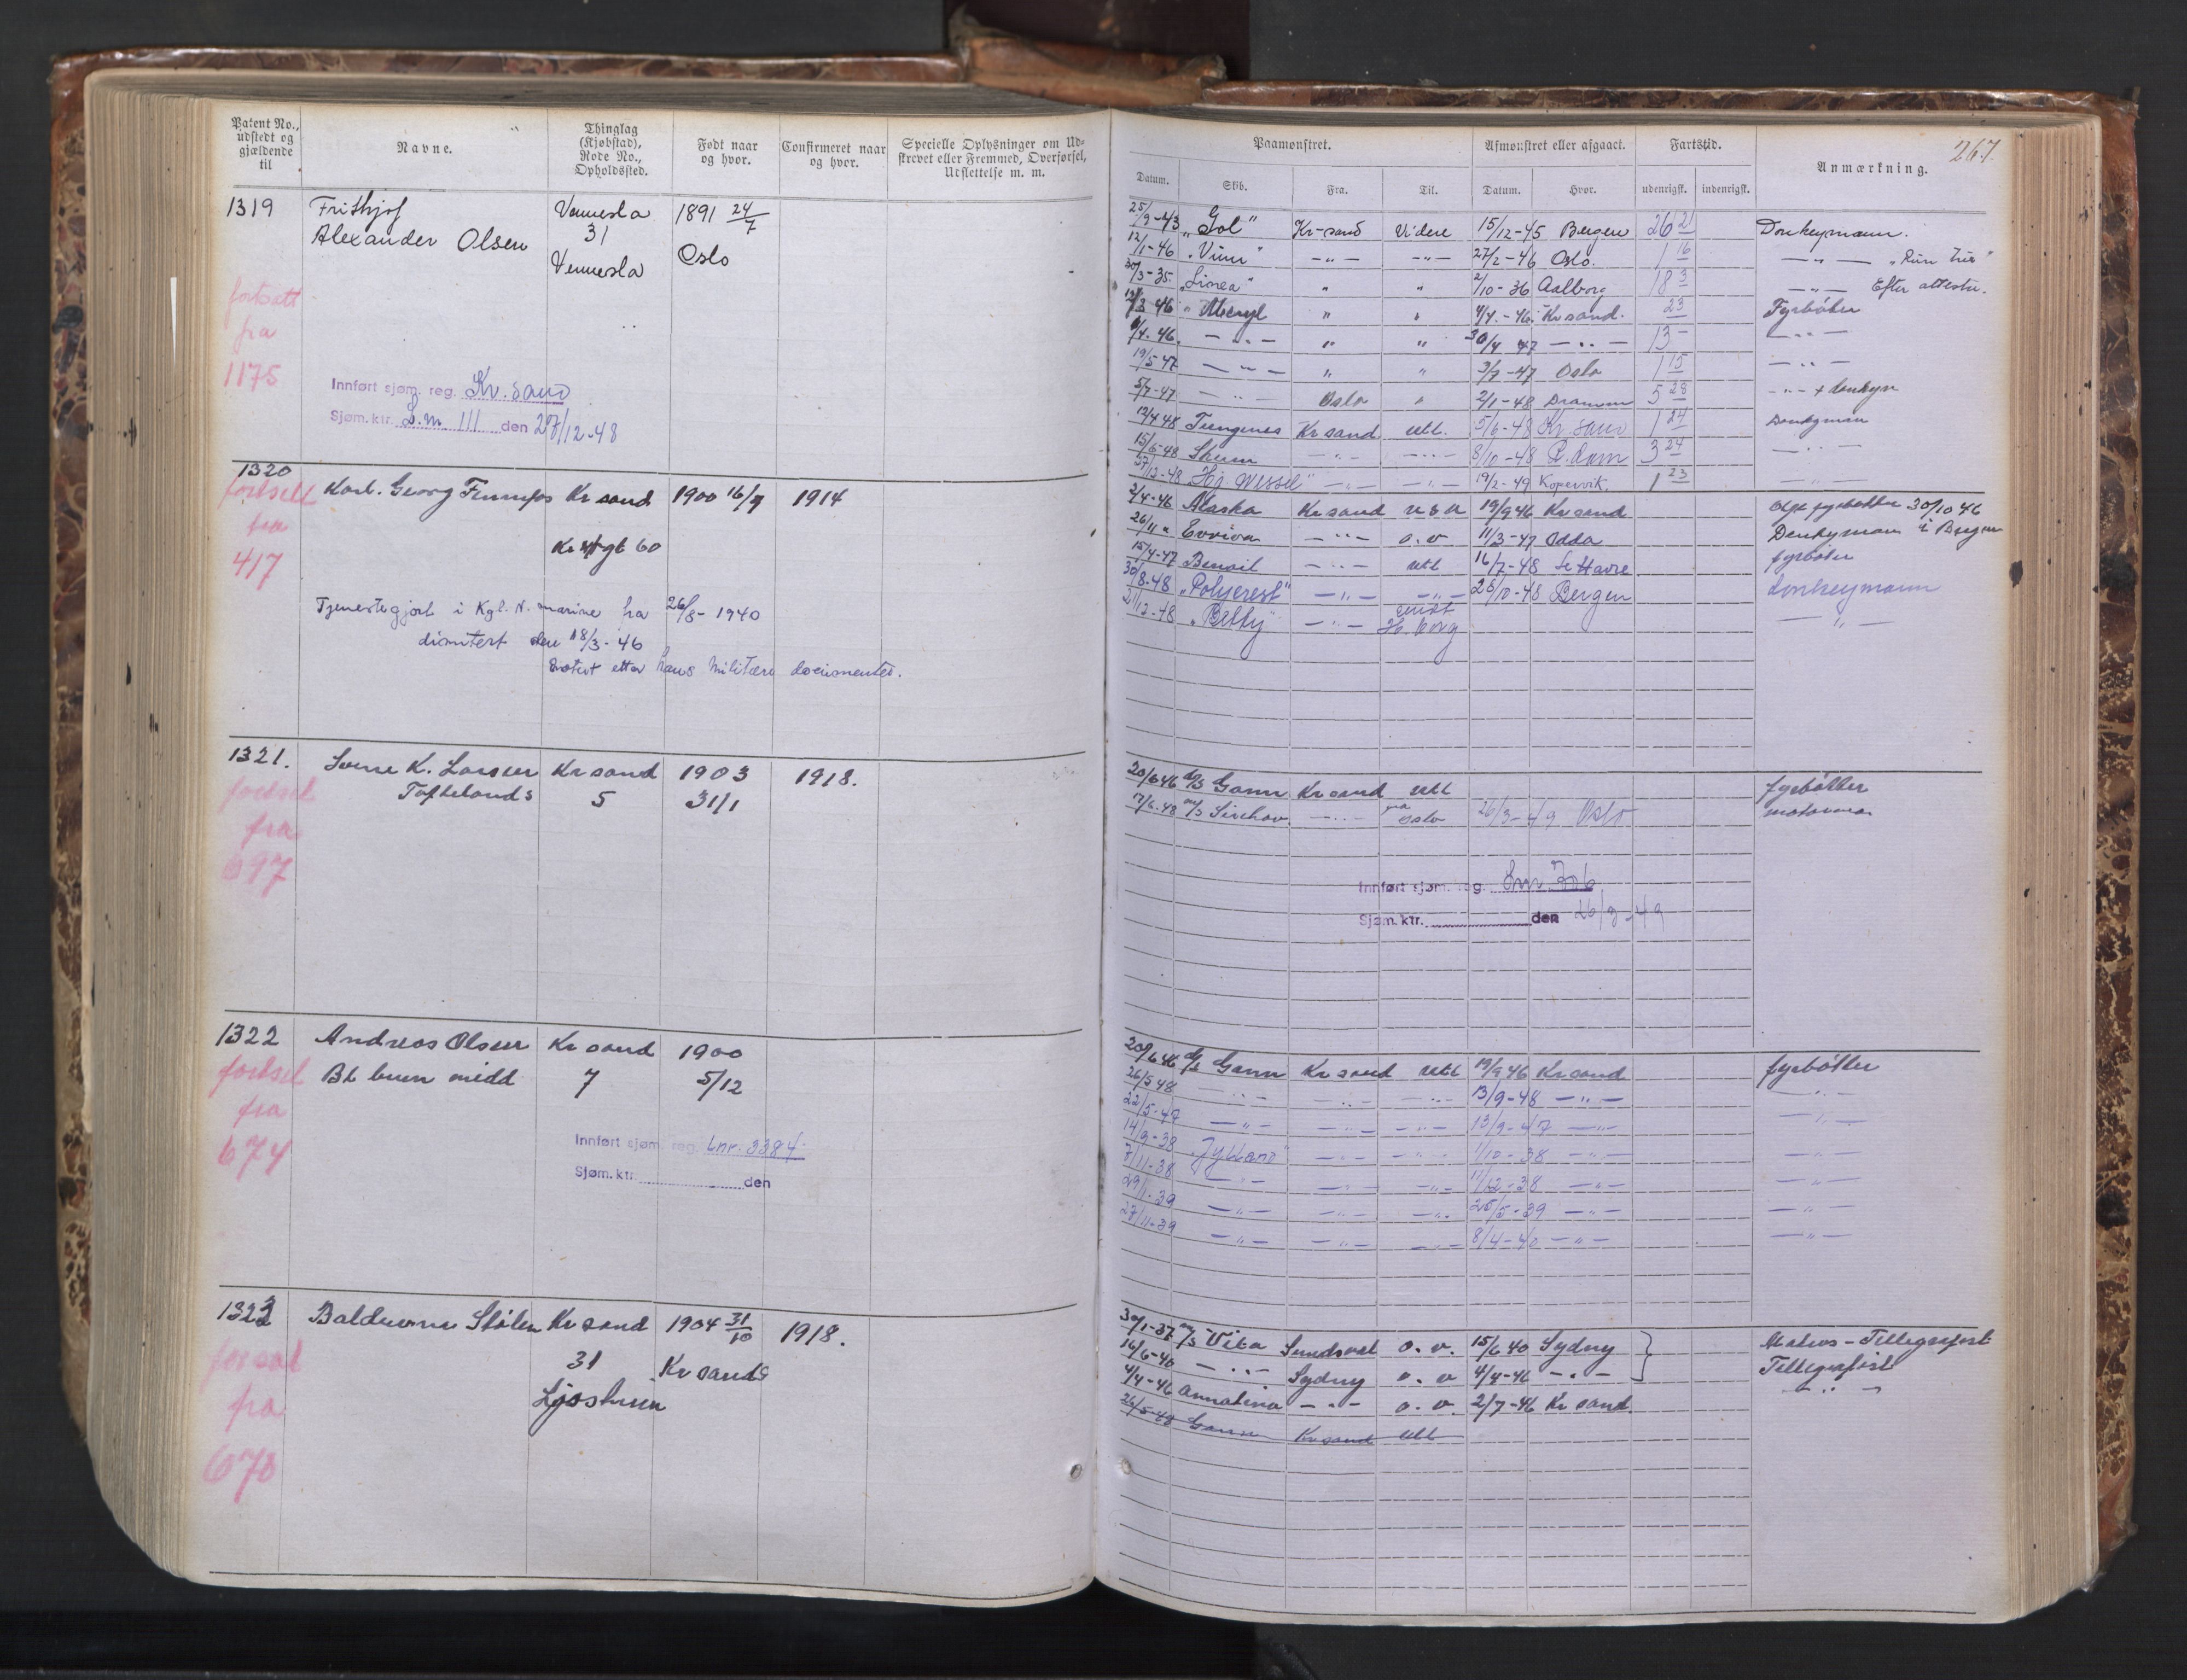 Patent No., udstedt og gjældende til
Navne.
Thinglag (Kjøbstad), Rode No., Opholdssted.
Født naar og hvor.
Confirmeret naar og hvor.
Specielle Oplysninger om Udskrevet eller Fremmed, Overførsel, Udslettelse m. m.
1319 Frithjof Vennesla 1891 24/7
Alexander Olsen 31
Vennesla Oslo
fortsatt
fra
1175
Innført sjøm. reg. Kr. sand
Sjøm. ktr. S.m. III den 27/12-48
1320 Karl. Georg Kr sand 1900 16/9 1914
fortsett
fra
417
60
Tjenestegjort i Kgl. N. marine fra 26/8-1940
dimitert den 18/3-46
Notert etter hans militære documenter.
1321. Sverre K. Larsen Kr sand 1903 1918.
Toftelands 5 31/1
fortset
fra
697
1322 Andreas Olsen Kr sand 1900
fortset 7 5/12
fra
674
Innført sjøm. reg. Lnr. 3384.
Sjøm. ktr. den
1323 Kr sand 1904 31/10 1918.
31 Kr sand
forsat
fra
670
267.
Paamønstret.
Afmønstret eller afgaaet.
Fartstid.
Anmærkning.
Datum. Skb. Fra. Til. Datum. Hvor. udenrigsk. indenrigsk.
25/9-43 "Gol" Kr-sand Videre 15/12-45 Bergen 26 21 Donkeymann.
12/1-46 -"- -"- 27/2-46 Oslo. 1 16 -"-
30/3-35. "Linea" " " 2/10-36 Aalborg 18 3 -"- Efter attester.
" " -46 Kr sand. 23 Fyrbøter
/4.46. -"- " " 30/4 47 -"- 13 - -"-
19/5-47 -"- " " 3/7-47 Oslo 1 15 -"-
5/7-47 -"- Oslo " 2/1-48 Dramm 5 28 -"- + donkym
12/4 48 Tungenes Kr sand utl. 5/6-48 Kr. sand 1 24 Donkyman
15/6-48 -"- -"- 8/10-48 R.dam 3 24 -"-
/12-48 -"- -"- 19/2-49 Kopervik. 1 23 -"-
2/4-46 Alaska Kr sand U S A 19/9 46 Kr sand fyrbøtter 30/10 46
26/11 " -"- o. v 11/3-47 Odda Donkyman i Bergen
15/4-47 Benoil -"- utl 16/7-48 Le Havre fyrbøter
30/8-48 "Polycrest" -"- -"- 25/10-48 Bergen donkeymann
21/12-48 "Betty" -"- -"-
20/6 46 D/S Gann Kr sand utl fyrbøtter
7/6-48 M/S -"- Oslo 26/3-49 Oslo
Innført sjøm. reg.
Sjøm. ktr. den 26/3-49
20/6 46 D/S Gann Kr sand utl 19/9 46 Kr sand fyrbøtter
26/5 48 -"- -"- -"- 13/9-48 -"- -"-
22/5-47 -"- -"- -"- 13/9-47 -"- -"-
14/9-38 "Jylland" -"- -"- 1/10-38 -"- -"-
7/11-38 -"- -"- -"- 11/12-38 -"- -"-
29/1-39 -"- -"- -"- 25/5-39 -"- -"-
27/11-39 -"- -"- -"- 8/4-40 -"- -"-
30/1-37 M/S Vita Sundsval o. v. 15/6 40 Sydny Matros - Tellegrafist
16/6-40 -"- Sydny o. v 4/4-46 -"- Tellegrafist
4/4-46 Annatina -"- o. v. 2/7-46 Kr sand. -"-
26/5-48 Gann Kr sand utl